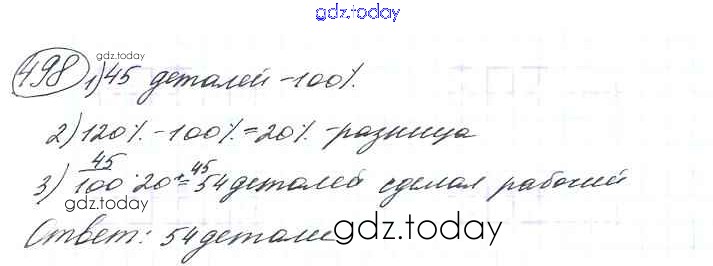 gdz.today
gdz.today
498 1) 45 деталей - 100%.
2) 120% - 100% = 20% - разница
3) 45/100 · 20 + 45 = 54 деталей сделал рабочий
gdz.today
Ответ: 54 детали
gdz.today